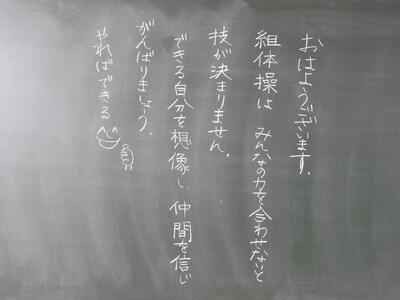 おはようございます.
組体操は みんなの力を合わせないと
技が決まりません.
できる自分を想像し、仲間を信じ
がんばりましょう.
やればできる